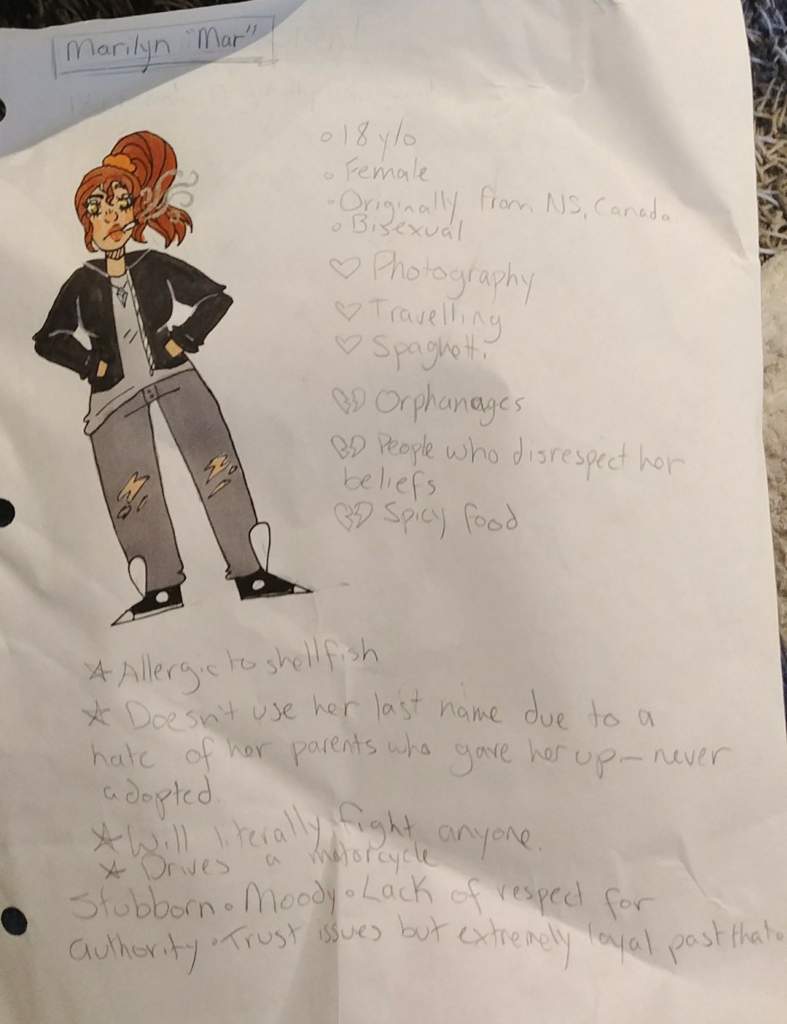 Marilyn "Mar"
18 y/o
Female
Originally from NS, Canada
Bisexual
Photography
Travelling
Spaghetti
Orphanages
People who disrespect her
beliefs
Spicy food
Allergic to shellfish
Doesn't use her last name due to a
hate of her parents who gave her up - never
adopted.
Will literally fight anyone.
Drives a motorcycle
Stubborn • Moody • Lack of respect for
authority • Trust issues but extremely loyal past that •